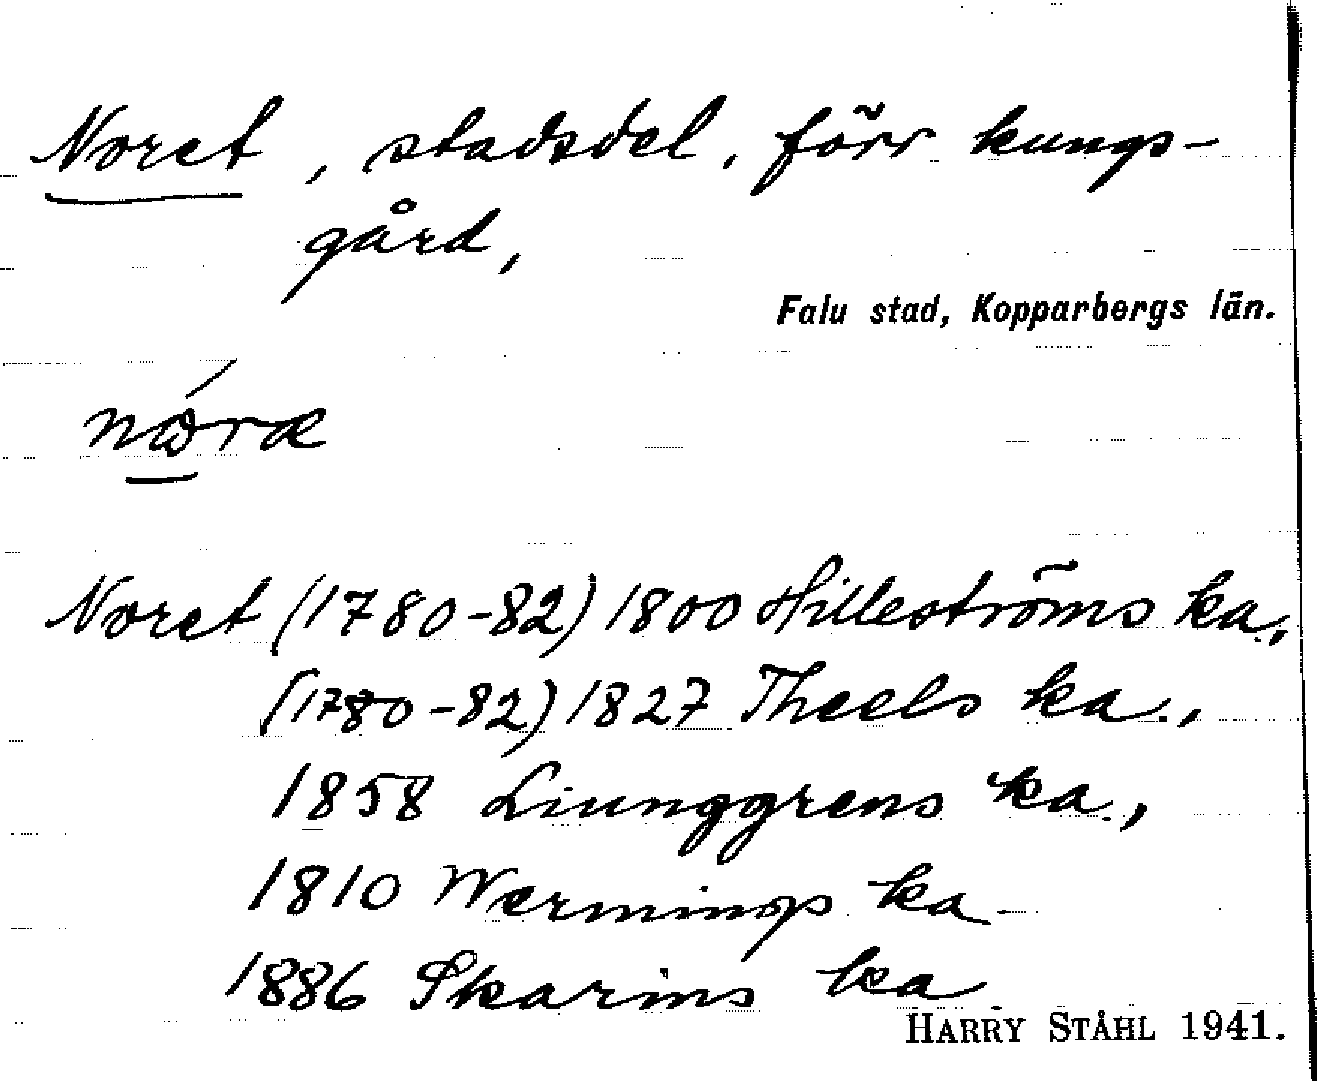 Noret, stadsdel, förr kungs-
gård,
Falu stad, Kopparbergs län.
Noret (1780-82) 1800 Hilleströms ka.,
(1780-82) 1827 Theels ka.,
1858 Liunggrens ka.,
1810 Wermings ka
1886 Skarins ka
HARRY STÅHL 1941.